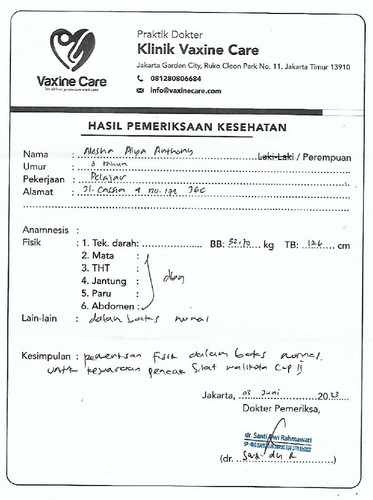 Vaxine Care
Praktik Dokter
Klinik Vaxine Care
Jakarta Garden City, Ruko Cleon Park No. 11, Jakarta Timur 13910
081280806684
info@vaxinecare.com
HASIL PEMERIKSAAN KESEHATAN
Nama : Alesha Alya Anthony Laki-Laki / Perempuan
Umur : 8 tahun
Pekerjaan : Pelajar
Alamat : Jl. Cassia 4 no. JGC
Anamnesis :
Fisik : 1. Tek. darah: BB: kg TB: 126 cm
2. Mata :
3. THT :
4. Jantung : dbn
5. Paru :
6. Abdomen :
Lain-lain : dalam batas normal
Kesimpulan : pemeriksaan fisik dalam batas normal.
untuk pencak silat walikota cup II
Jakarta, Juni 2023
Dokter Pemeriksa,
dr. Santi Dwi Rahmawati
(dr. )